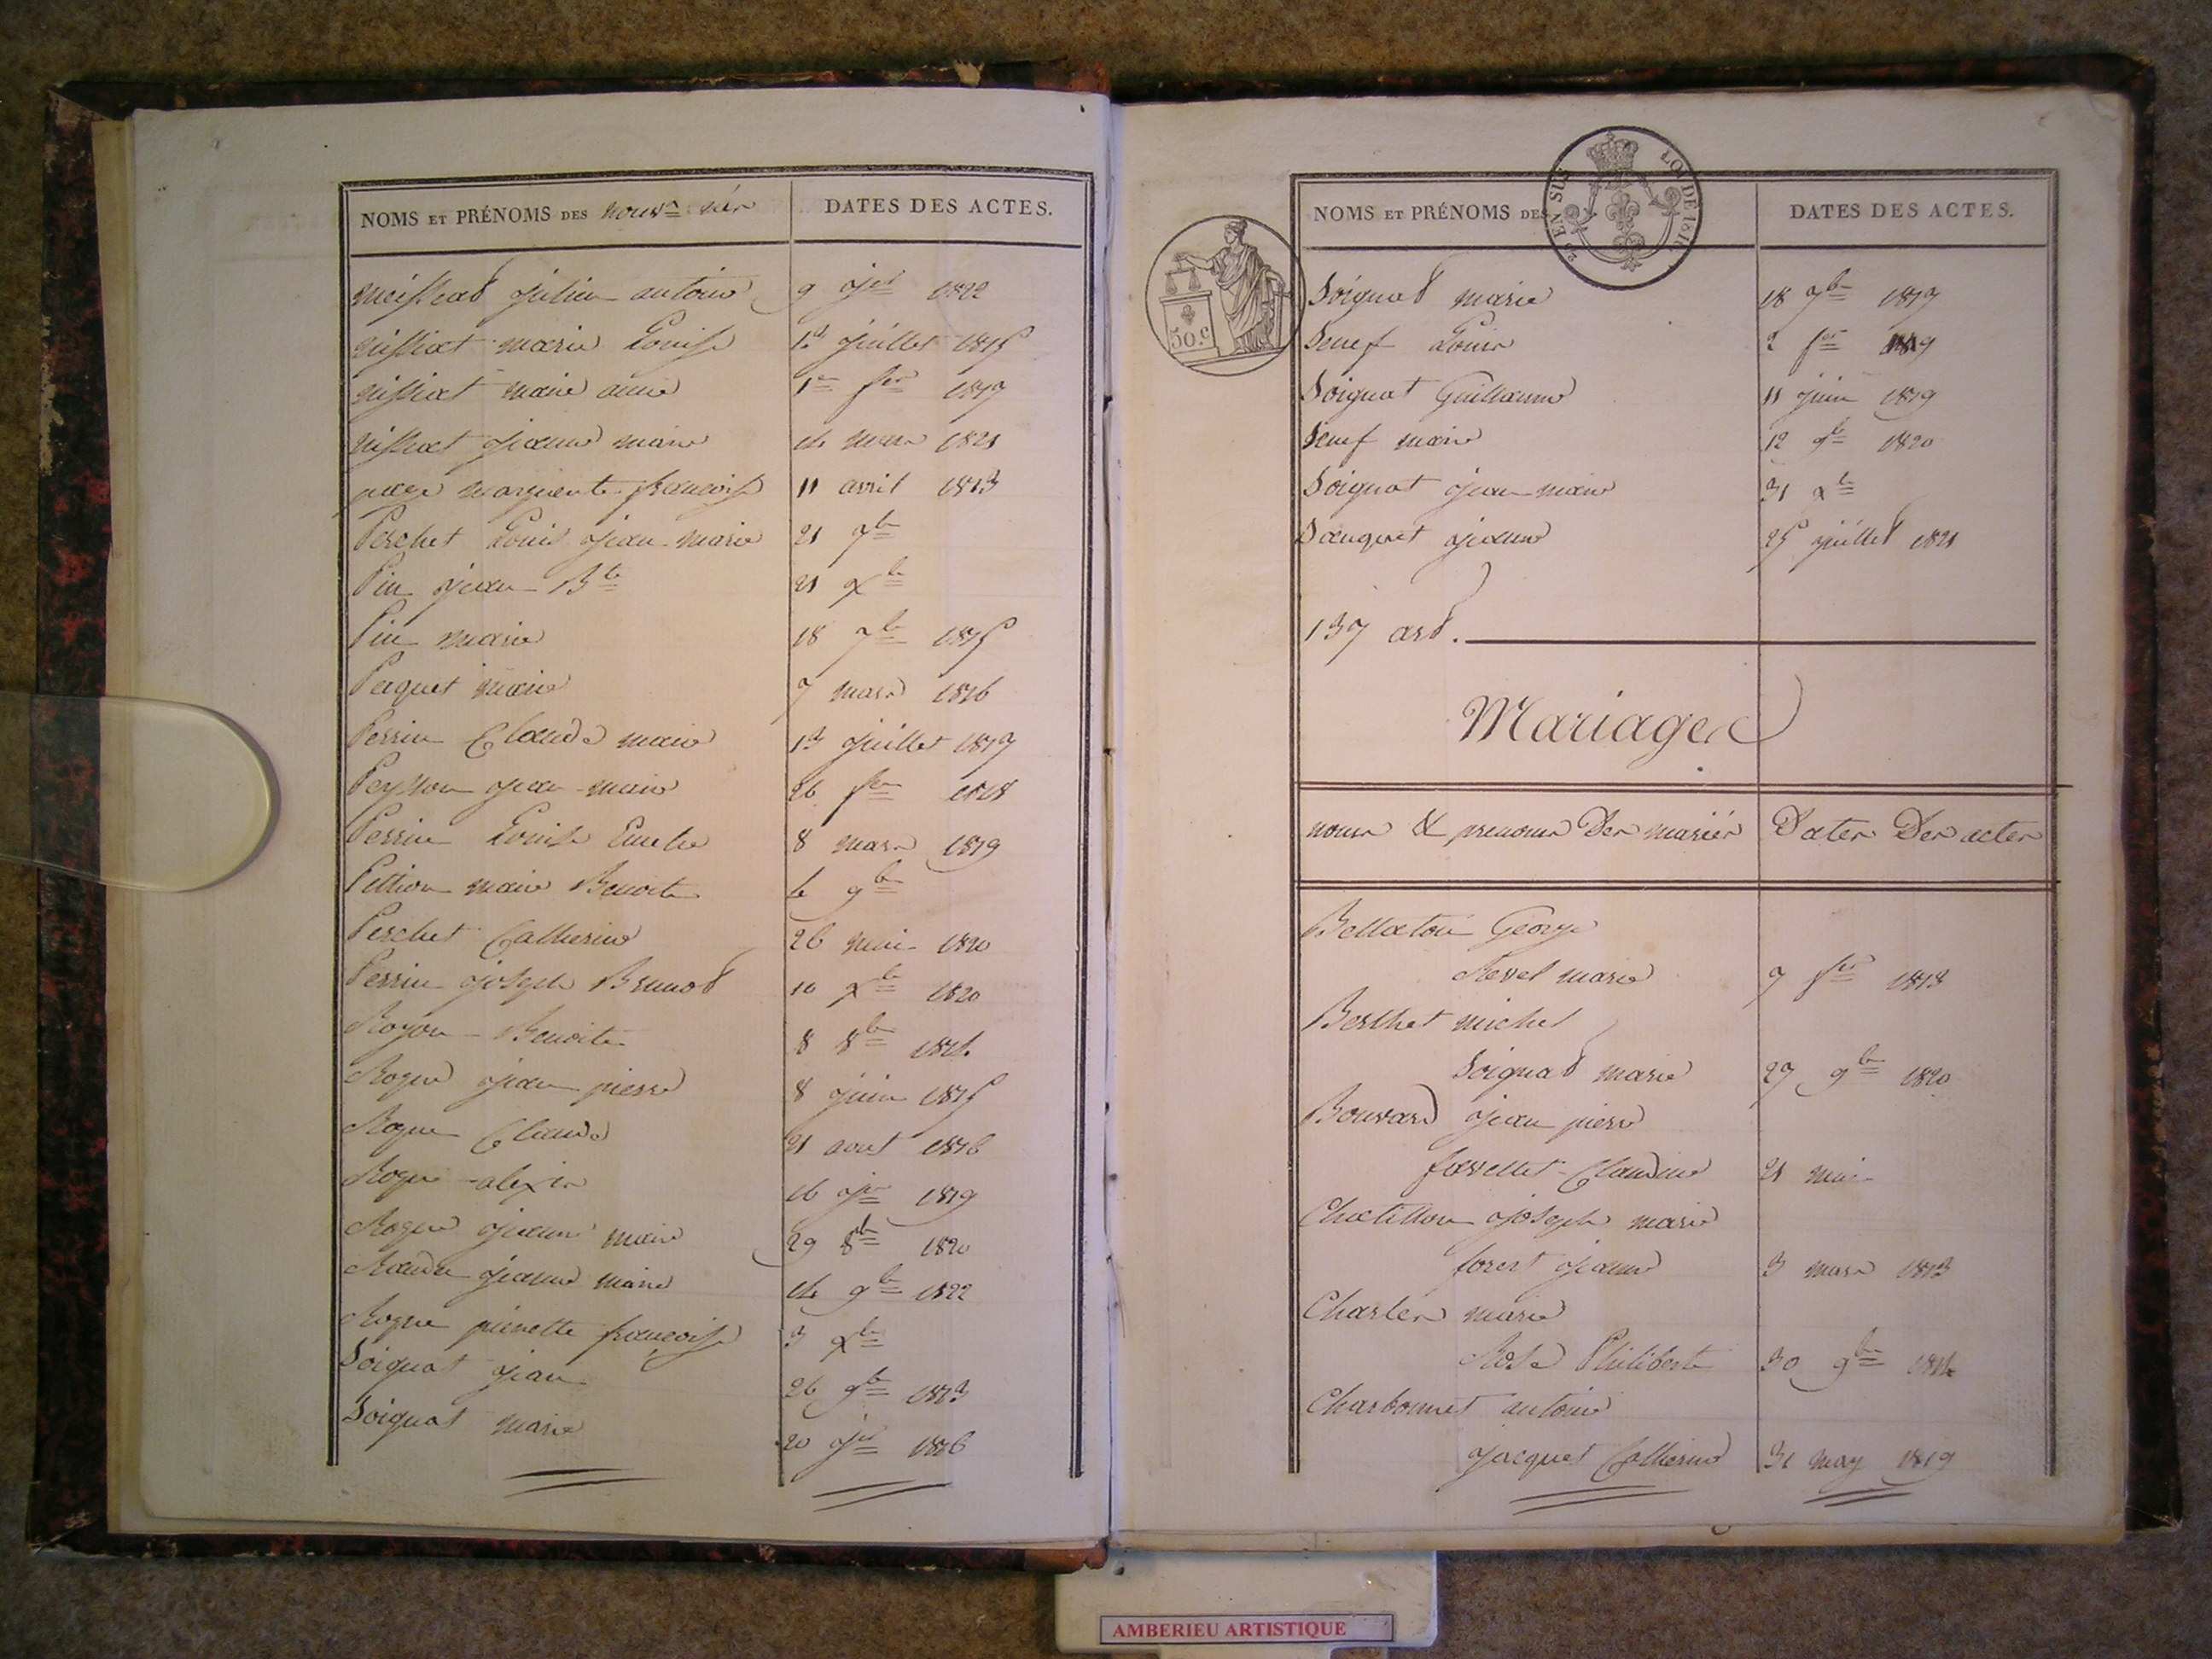 NOMS ET PRÉNOMS DES nouvx nés DATES DES ACTES.
julien antoine 9 1822
marie Louise 13 juillet 1815
marie anne 1er fer 1817
jeanne marie 14 mars 1821
marguerite françoise 11 avril 1813
Perchet Louis jean marie 21 7bre
Pin jean Bte 21 xbre
Pin marie 18 7bre 1815
Paquet marie 7 mars 1816
Perrin Claude marie 13 juillet 1817
Peysson jean marie 26 fer 1818
Perrin Louise 8 mars 1819
Pittion marie Benoite 6 9bre
Perchet Catherine 26 mai 1820
Perrin joseph Brunot 10 xbre 1820
Royon Benoite 8 8bre 1814
Rogue jean pierre 8 juin 1815
Rogue Claude 21 aout 1816
Rogue alexis 16 jer 1819
Rogue jeanne marie 29 8bre 1820
jeanne marie 14 9bre 1822
Rogue pierrette françoise 3 xbre
Soignat jean 26 9bre 1813
Soignat marie 20 jet 1816
NOMS ET PRÉNOMS DES DATES DES ACTES.
EN SUS LOI DE 1816
50 c
Soignat marie 18 7bre 1817
Seuef Louis 2 fer 1819
Soignat Guillaume 11 juin 1819
Seuef marie 12 9bre 1820
Soignat jean marie 31 xbre
Sauquet jeanne 25 juillet 1821
137 art.
Mariages
noms & prenoms Des mariés Dates Des actes
Bellaton George
Revel marie 7 fer 1813
Berthet michel
Soignat marie 27 9bre 1820
Bouvard jean pierre
favellet Claudine 21 mai
Chatillon joseph marie
forest jeanne 3 mars 1813
Charles marie
Rose Philiberte 30 9bre 1814
Charbonnet antoine
jacquet Catherine 31 may 1819
AMBERIEU ARTISTIQUE